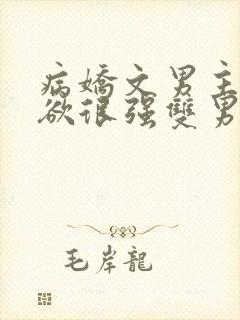 病嬌文男主
欲很强雙男
毛岸龍